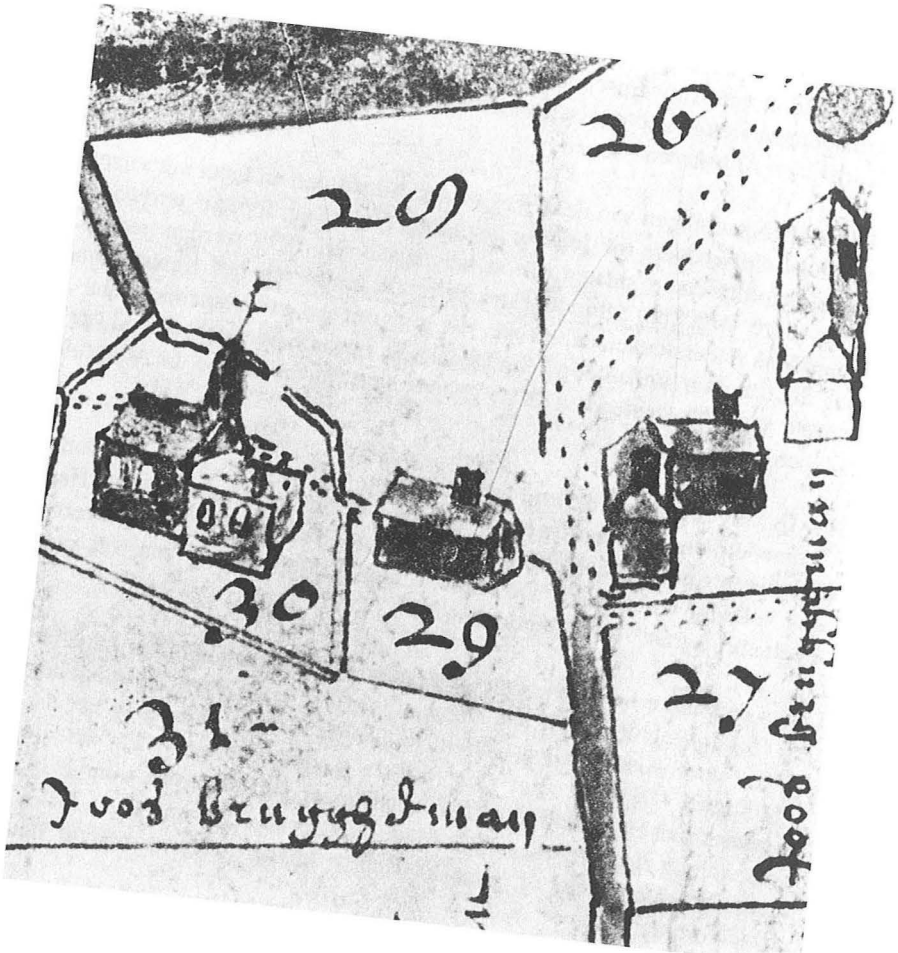 26
25
30
29
27
31-
Joos brugghman
Joos bruggeman